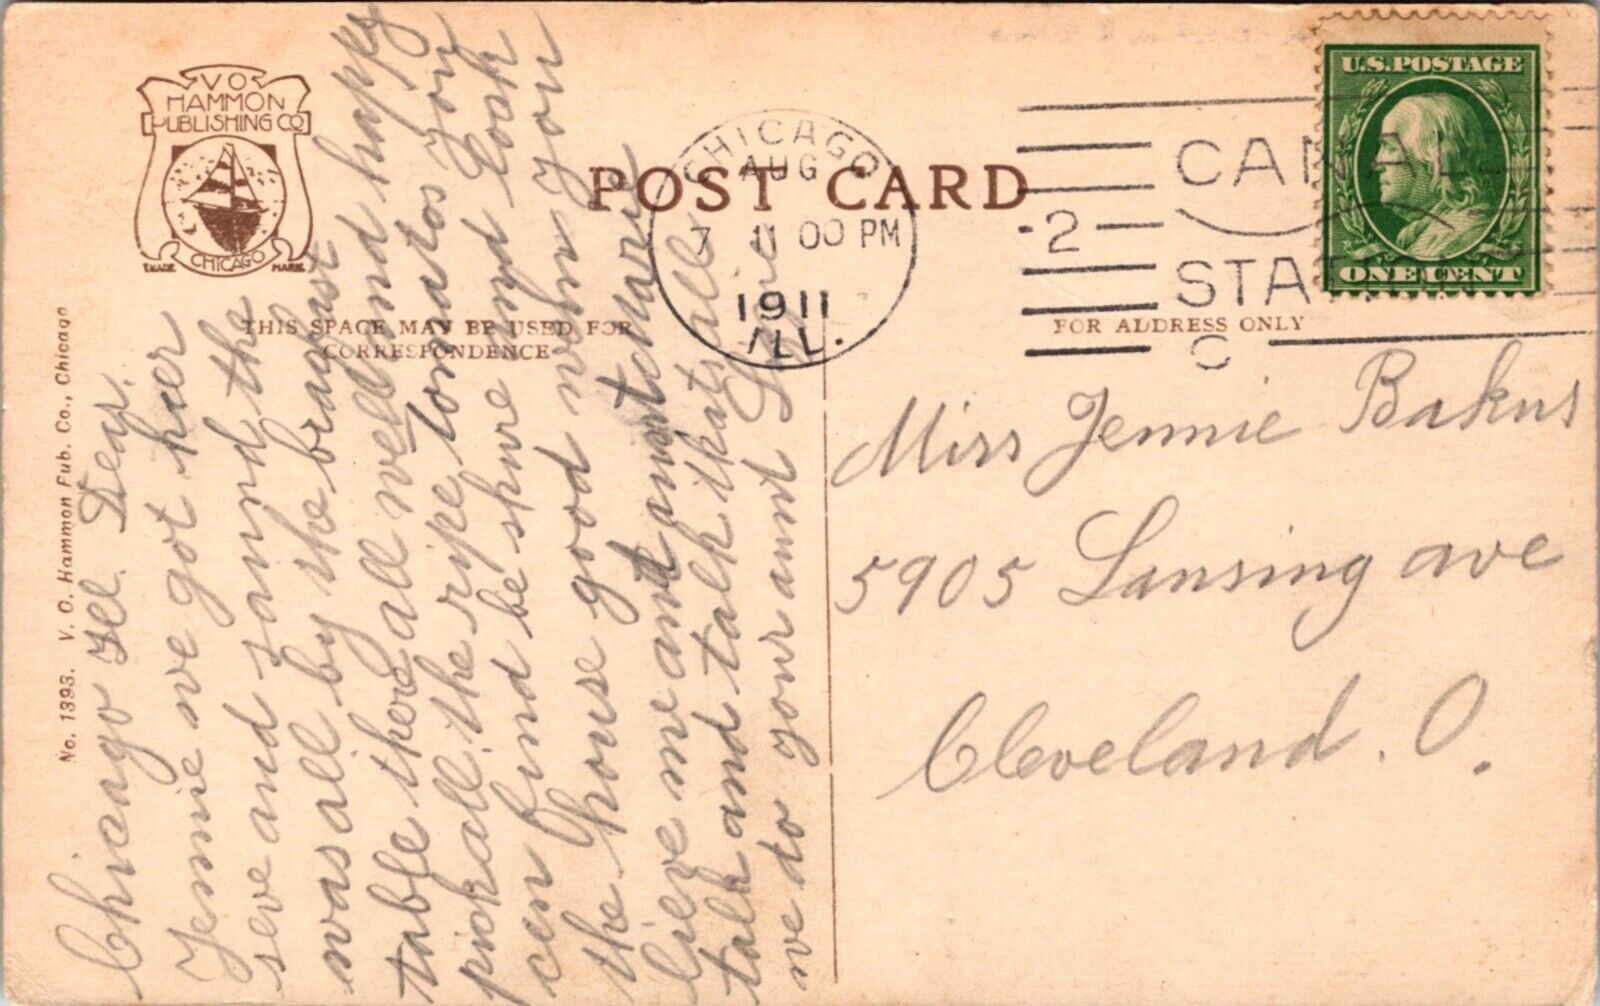 VO
HAMMON
PUBLISHING CO
CHICAGO
TRADE MARK
POST CARD
CHICAGO
AUG
7 11 00 PM
1911
ILL.
2
CANAL
STATION
C
U.S. POSTAGE
ONE CENT
THIS SPACE MAY BE USED FOR
CORRESPONDENCE
FOR ADDRESS ONLY
No. 1893. V. O. Hammon Pub. Co., Chicago
Chicago Ill. Dear
Jennie we got heer
seve and saond the
was all by the brackust
table there all well and happy
pick all the ripe tomatos you
cen find be shure and lock
the house good wehn you
lieve me and aunt Marie
talk and talk thats all
we do your aunt
Miss Jennie Bakus
5905 Lansing ave
Cleveland. O.